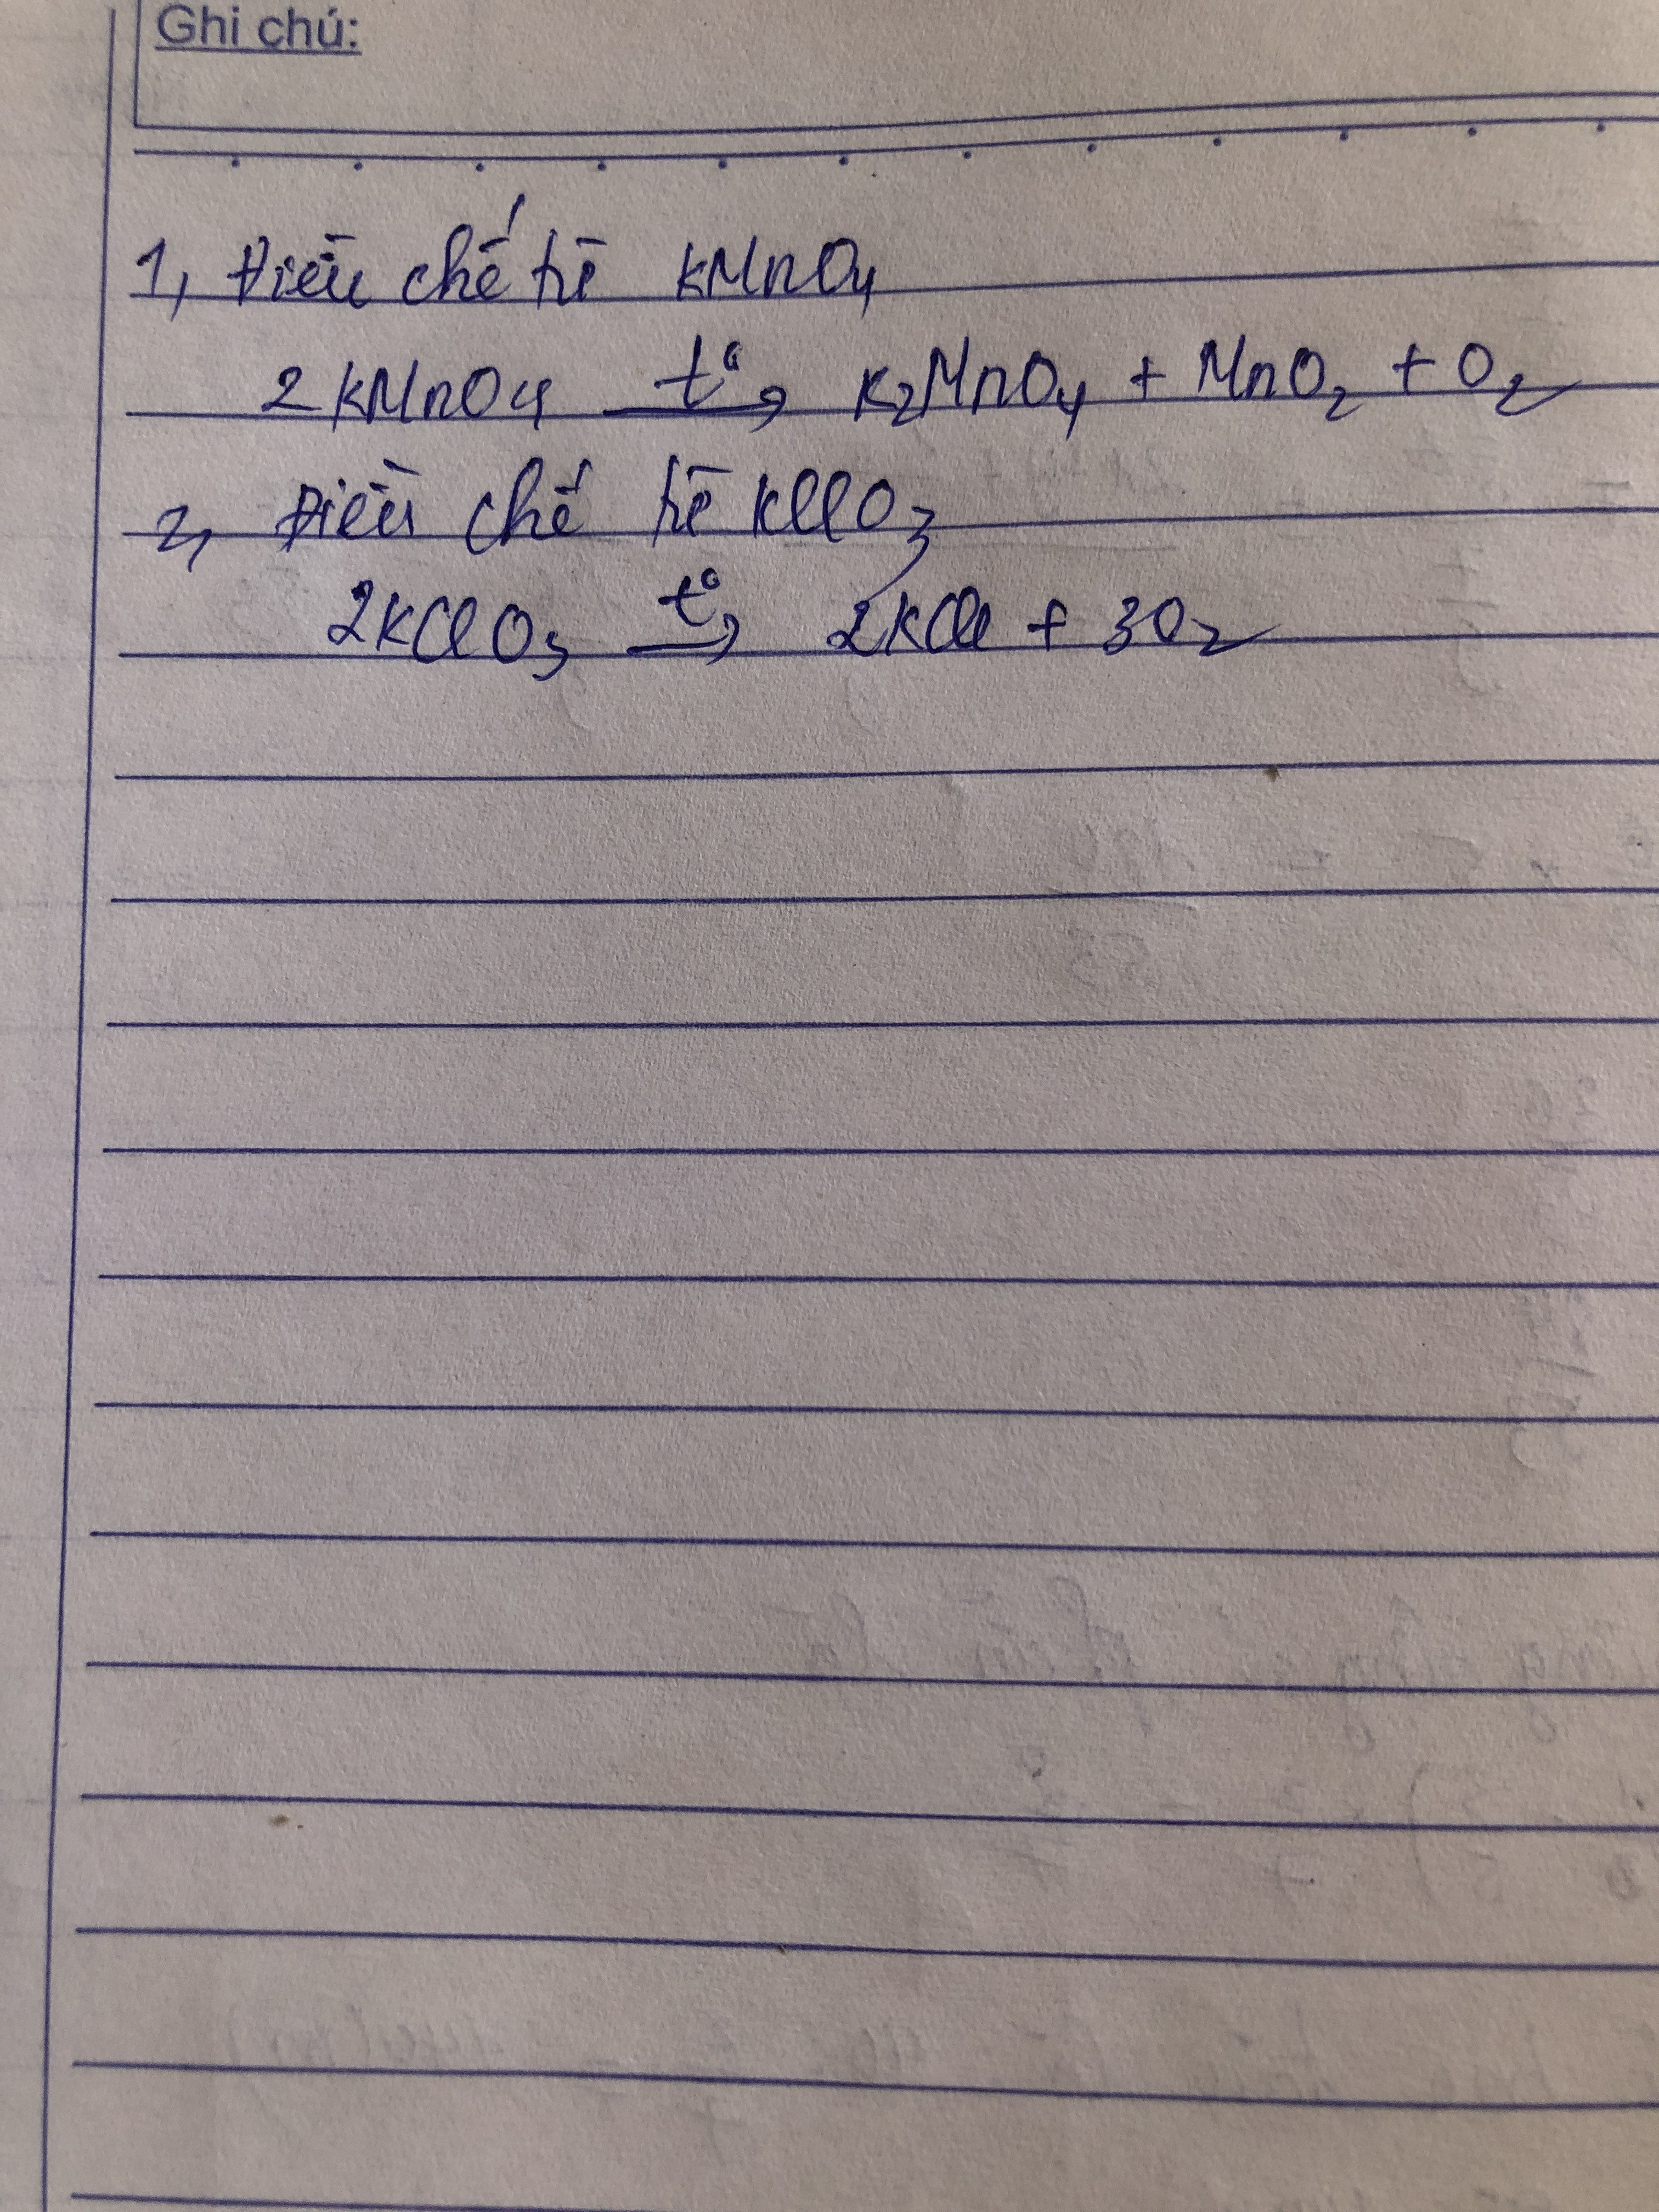 Ghi chú:
1, Điều chế từ KMnO4
2KMnO4 t° → K2MnO4 + MnO2 + O2
2, Điều chế từ KClO3
2KClO3 t° → 2KCl + 3O2